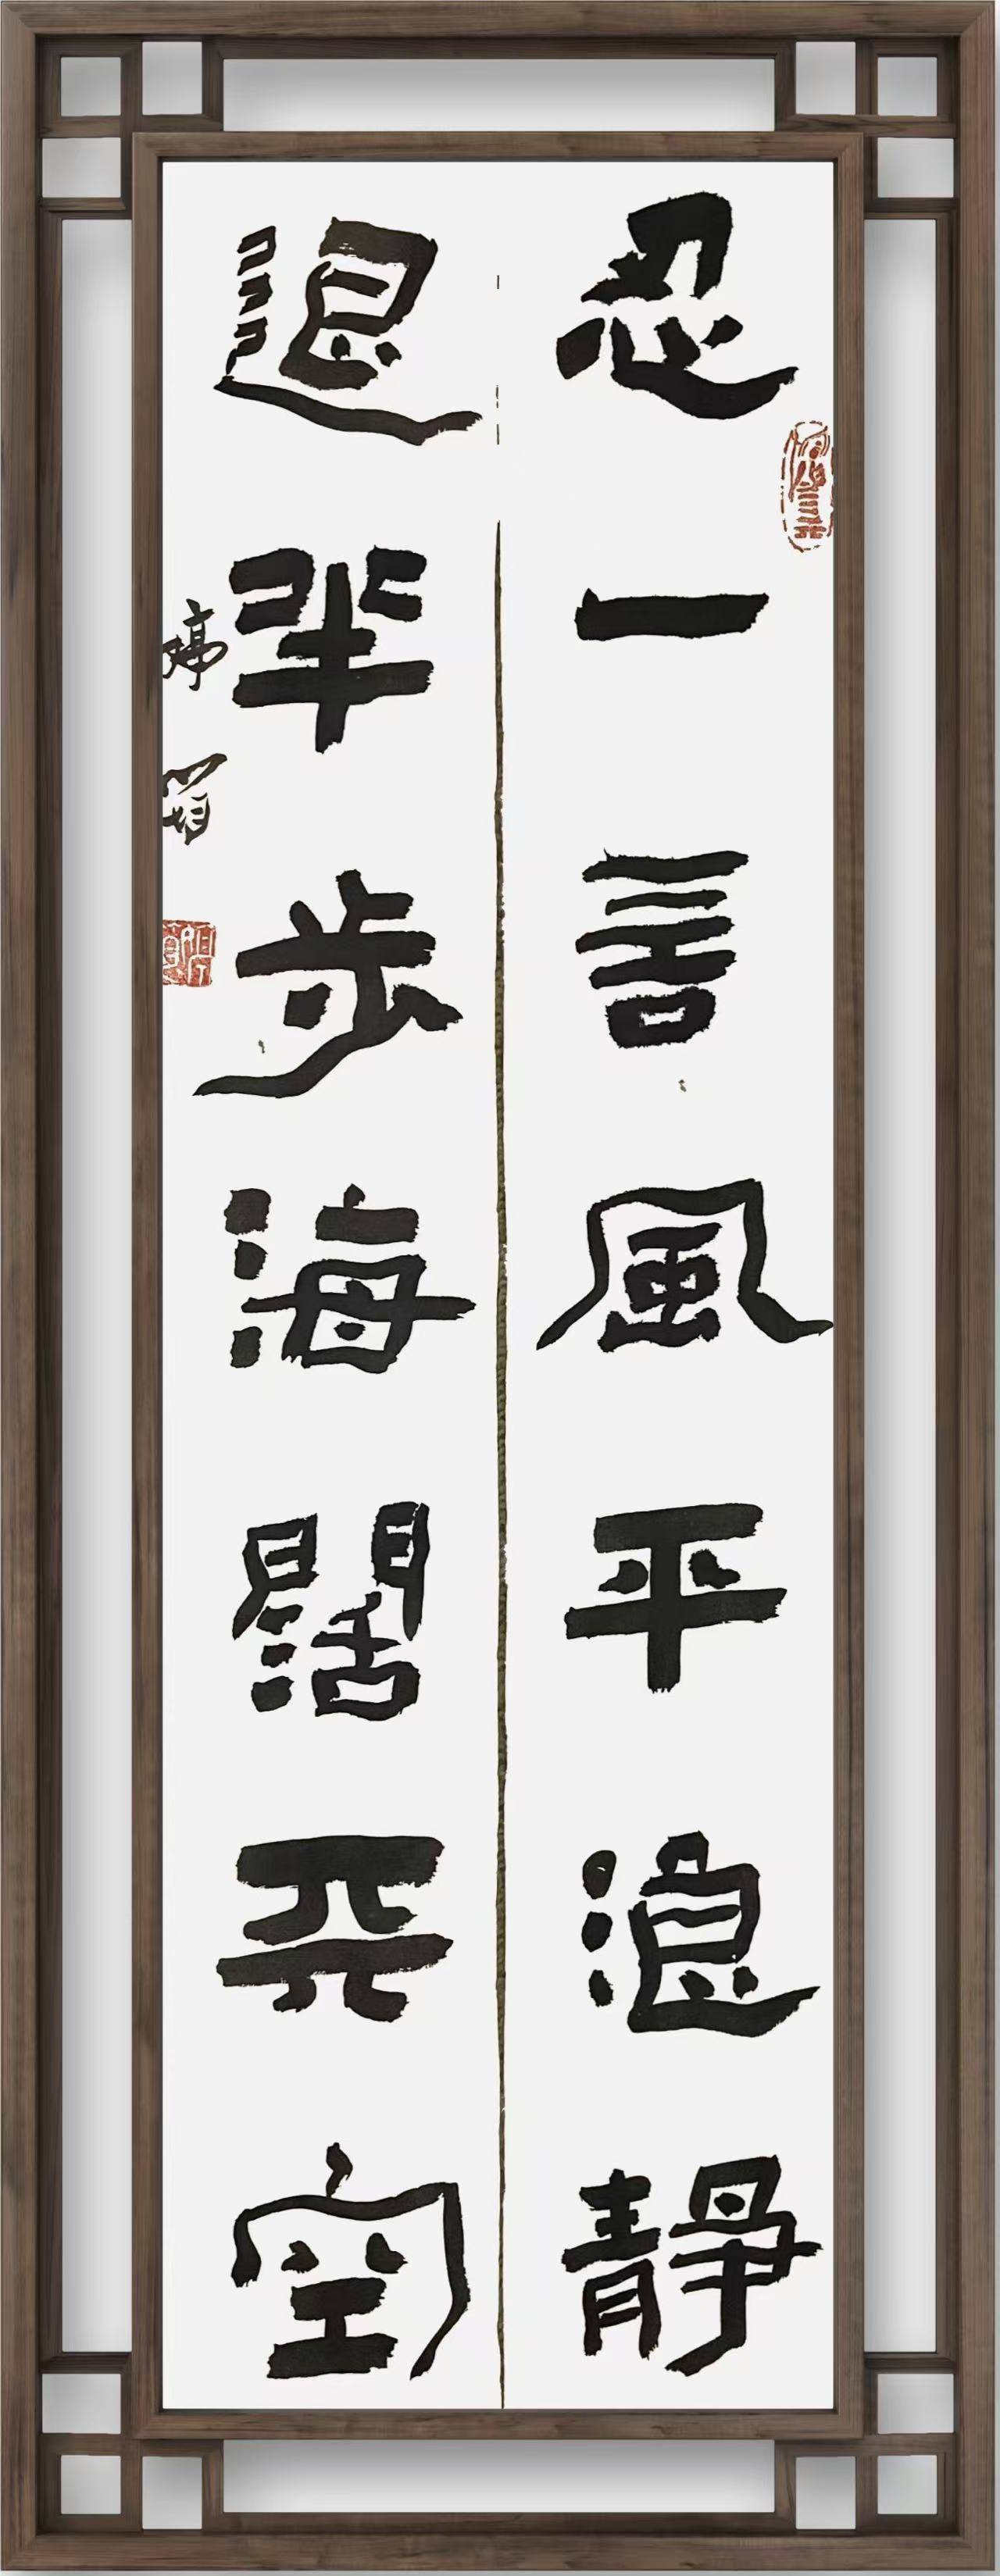 忍一言風平浪靜
退半步海闊天空
婷